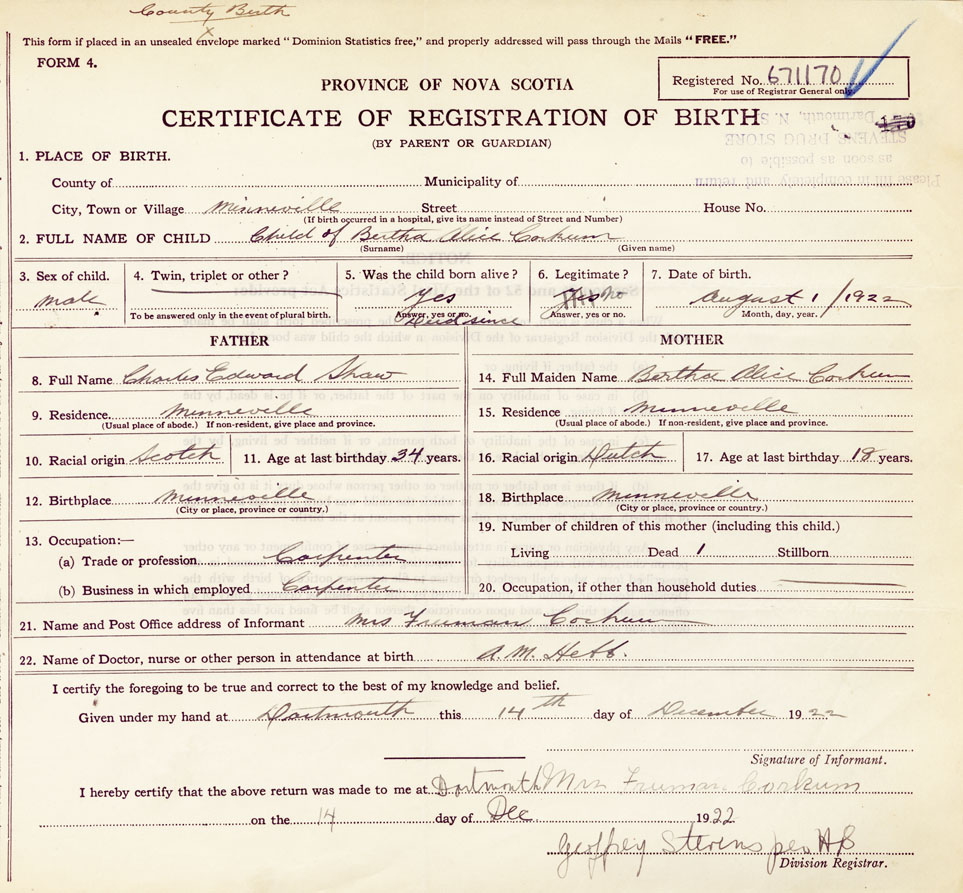 County Birth
This form if placed in an unsealed envelope marked "Dominion Statistics free," and properly addressed will pass through the Mails "FREE."
FORM 4.
Registered No. 671170
For use of Registrar General only.
PROVINCE OF NOVA SCOTIA
CERTIFICATE OF REGISTRATION OF BIRTH
(BY PARENT OR GUARDIAN)
Dartmouth, N. S.
STEVENS DRUG STORE
as soon as possible to
Please fill in completely and return
1. PLACE OF BIRTH.
County of Municipality of
City, Town or Village Minneville Street House No.
(If birth occurred in a hospital, give its name instead of Street and Number)
2. FULL NAME OF CHILD Child of Bertha Alice Corkum
(Surname) (Given name)
3. Sex of child. 4. Twin, triplet or other? 5. Was the child born alive? 6. Legitimate? 7. Date of birth.
male Yes Yes No August 1/1922
To be answered only in the event of plural birth. Answer, yes or no. Answer, yes or no. Month, day, year.
Dead since
FATHER MOTHER
8. Full Name Charles Edward Shaw 14. Full Maiden Name Bertha Alice Corkum
9. Residence Minneville 15. Residence Minneville
(Usual place of abode.) If non-resident, give place and province. (Usual place of abode.) If non-resident, give place and province.
10. Racial origin Scotch 11. Age at last birthday 34 years. 16. Racial origin Dutch 17. Age at last birthday 18 years.
12. Birthplace Minneville 18. Birthplace Minneville
(City or place, province or country.) (City or place, province or country.)
19. Number of children of this mother (including this child.)
13. Occupation:—
(a) Trade or profession Carpenter Living Dead 1 Stillborn
(b) Business in which employed Carpenter 20. Occupation, if other than household duties
21. Name and Post Office address of Informant Mrs Freeman Corkum
22. Name of Doctor, nurse or other person in attendance at birth A. M. Hebb.
I certify the foregoing to be true and correct to the best of my knowledge and belief.
Given under my hand at Dartmouth this 14th day of December 1922
Signature of Informant.
I hereby certify that the above return was made to me at Dartmouth Mrs Freeman Corkum
on the 14 day of Dec 1922
Geoffrey Stevens per HB
Division Registrar.